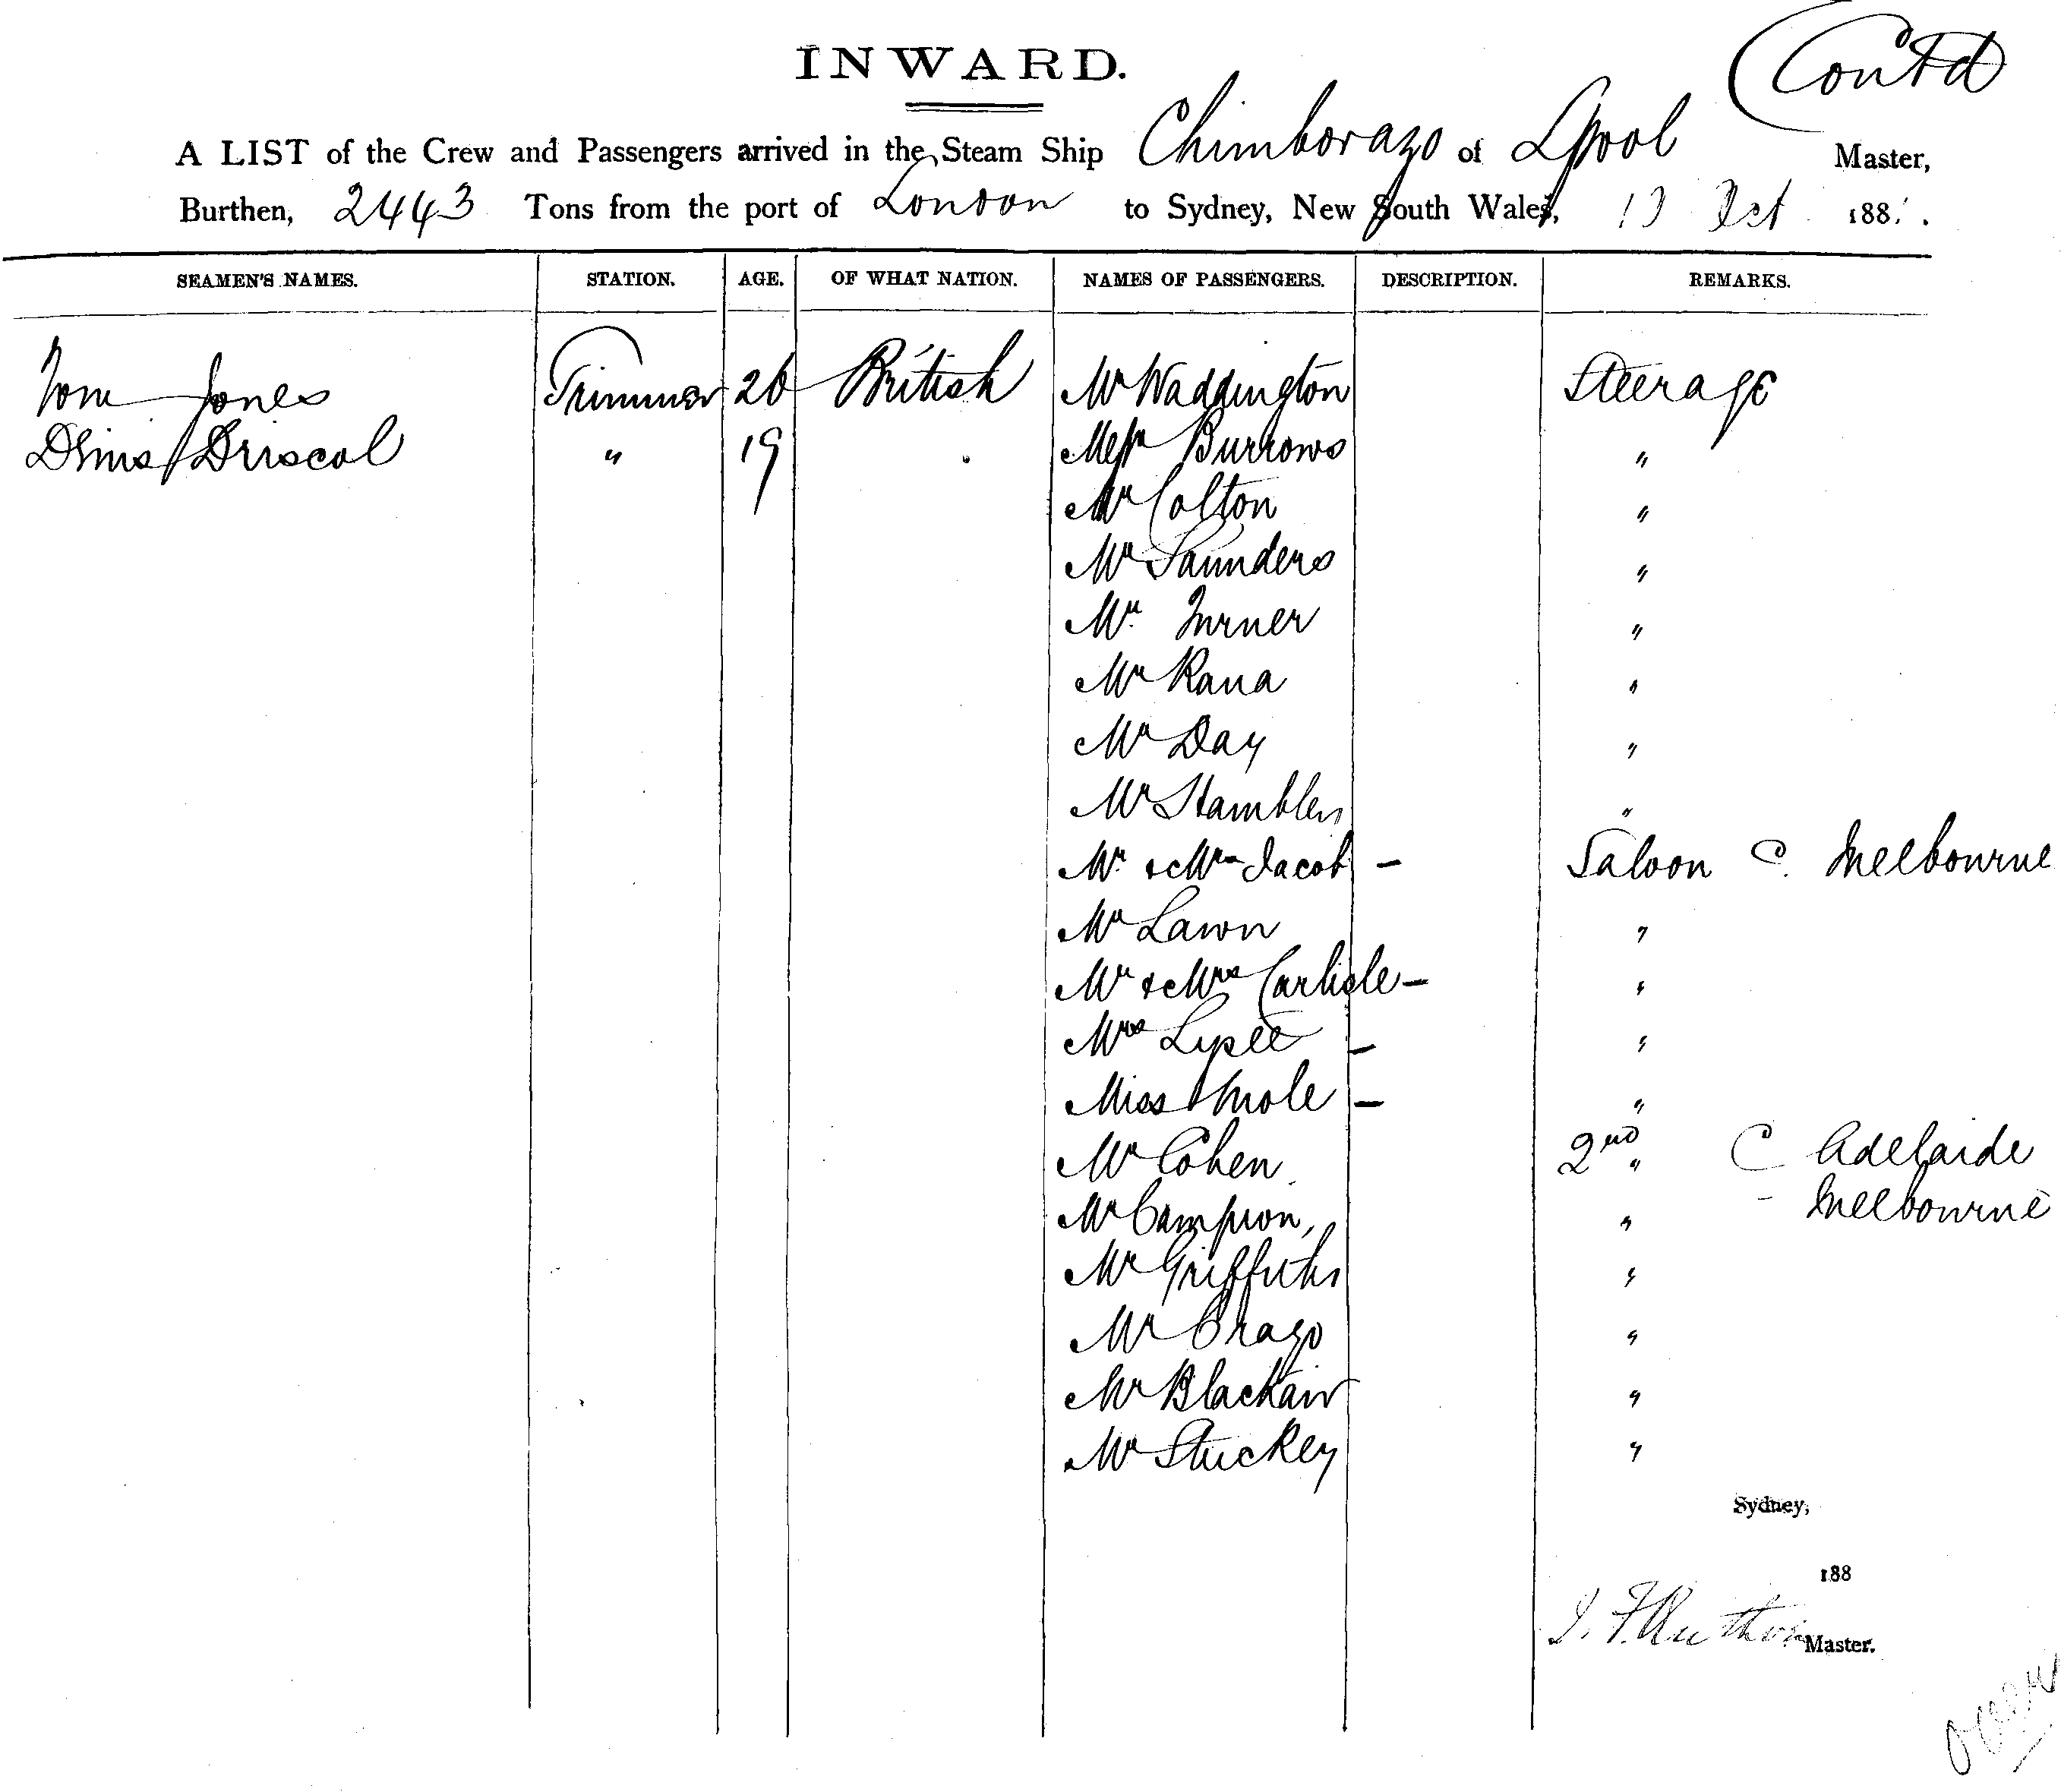 (Contd
INWARD.
A LIST of the Crew and Passengers arrived in the Steam Ship Chimborazo of Lpool Master,
Burthen, 2443 Tons from the port of London to Sydney, New South Wales, Oct 188
SEAMEN'S NAMES. STATION. AGE. OF WHAT NATION. NAMES OF PASSENGERS. DESCRIPTION. REMARKS.
Tom Jones Trimmer 26 British Mr Waddington Steerage
Denis Driscol " 19 Burrows "
Mr Colton "
Mr Saunders "
Mr Turner "
Mr Rana "
Mr Day "
Mr "
Mr & Mrs Jacob - Saloon C. Melbourne
Mr Lawn "
Mr & Mrs Carlisle - "
Mrs - "
Miss Mole - "
Mr Cohen 2nd " C Adelaide
Mr Campion, " - Melbourne
Mr Griffiths "
Mr Crago "
Mr "
Mr Stuckey "
Sydney,
188
Master.
over